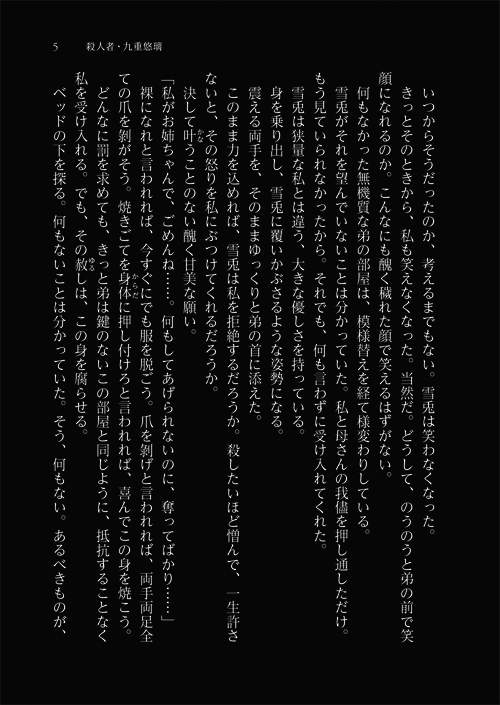 5　殺人者・九重悠璃
いつからそうだったのか、考えるまでもない。雪兎は笑わなくなった。
きっとそのときから、私も笑えなくなった。当然だ。どうして、のうのうと弟の前で笑
顔になれるのか。こんなにも醜く穢れた顔で笑えるはずがない。
何もなかった無機質な弟の部屋は、模様替えを経て様変わりしている。
雪兎がそれを望んでいないことは分かっていた。私と母さんの我儘を押し通しただけ。
もう見ていられなかったから。それでも、何も言わずに受け入れてくれた。
雪兎は狭量な私とは違う、大きな優しさを持っている。
身を乗り出し、雪兎に覆いかぶさるような姿勢になる。
震える両手を、そのままゆっくりと弟の首に添えた。
このまま力を込めれば、雪兎は私を拒絶するだろうか。殺したいほど憎んで、一生許さ
ないと、その怒りを私にぶつけてくれるだろうか。
決して叶うことのない醜く甘美な願い。
「私がお姉ちゃんで、ごめんね……。何もしてあげられないのに、奪ってばかり……」
裸になれと言われれば、今すぐにでも服を脱ごう。爪を剝げと言われれば、両手両足全
ての爪を剝がそう。焼きごてを身体に押し付けろと言われれば、喜んでこの身を焼こう。
どんなに罰を求めても、きっと弟は鍵のないこの部屋と同じように、抵抗することなく
私を受け入れる。でも、その赦しは、この身を腐らせる。
ベッドの下を探る。何もないことは分かっていた。そう、何もない。あるべきものが、